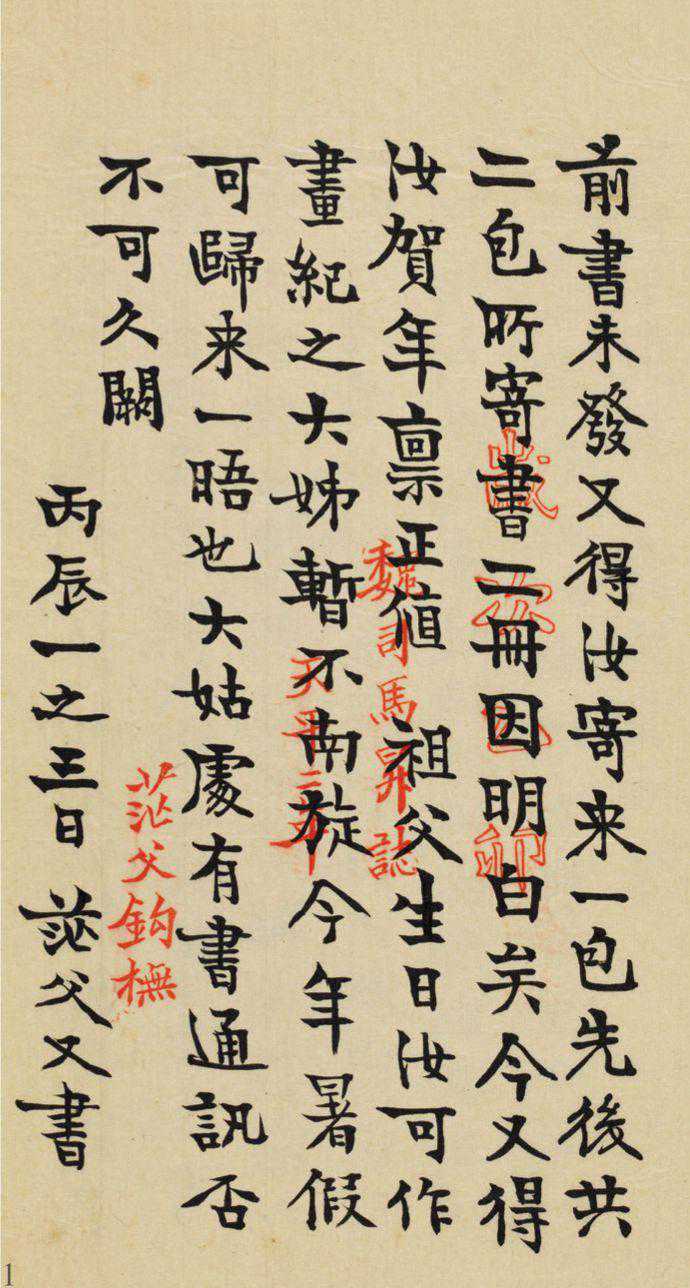 前書未發又得汝寄来一包先後共
二包所寄書二冊因明白矣今又得
汝賀年禀正值 祖父生日汝可作
畫紀之大姊暫不南旋今年暑假
可歸来一晤也大姑處有書通訊否
不可久闕
丙辰一之三日 茫父又書
歲次乙卯
魏司馬昇誌
天平二年
茫父鉤橅
1